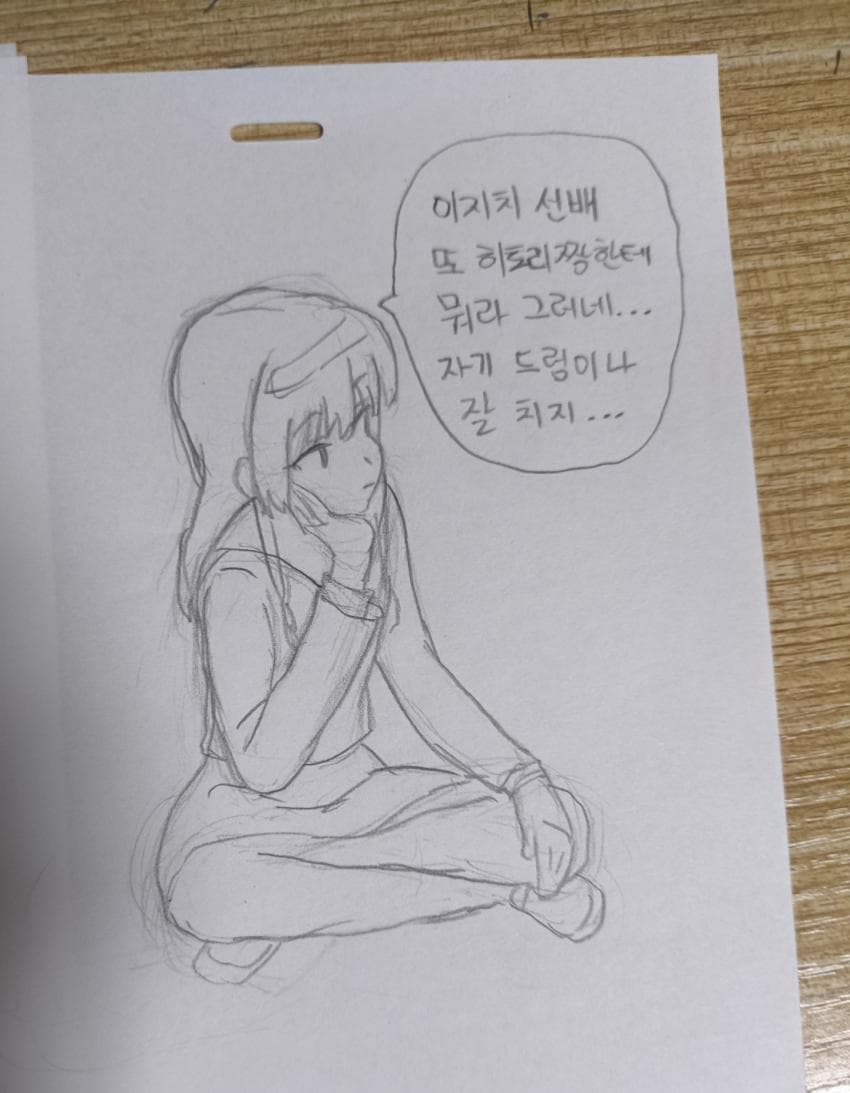 이지치 선배
또 히토리쨩한테
뭐라 그러네...
자기 드럼이나
잘 치지...